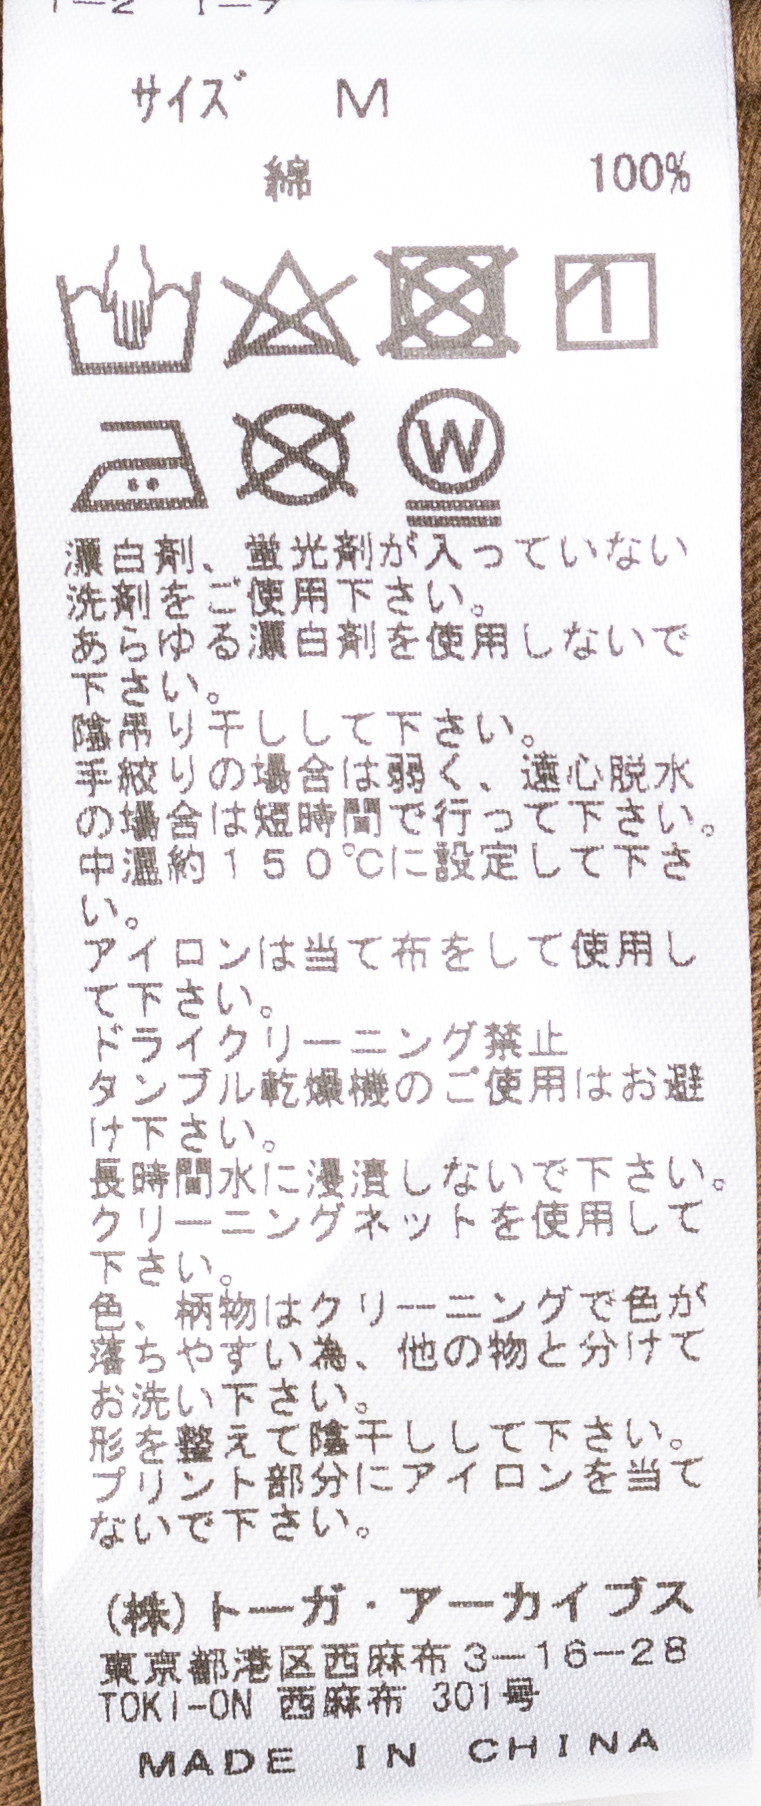 サイズ M
綿 100%
W
漂白剤、蛍光剤が入っていない
洗剤をご使用下さい。
あらゆる漂白剤を使用しないで
下さい。
陰吊り干しして下さい。
手絞りの場合は弱く、遠心脱水
の場合は短時間で行って下さい。
中温約150℃に設定して下さ
い。
アイロンは当て布をして使用し
て下さい。
ドライクリーニング禁止
タンブル乾燥機のご使用はお避
け下さい。
長時間水に浸漬しないで下さい。
クリーニングネットを使用して
下さい。
色、柄物はクリーニングで色が
落ちやすい為、他の物と分けて
お洗い下さい。
形を整えて陰干しして下さい。
プリント部分にアイロンを当て
ないで下さい。
(株)トーガ・アーカイブス
東京都港区西麻布3-16-28
TOKI-ON 西麻布 301号
MADE IN CHINA